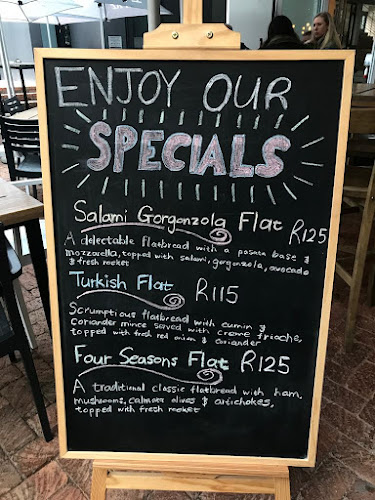 ENJOY OUR
SPECIALS
Salami Gorgonzola Flat R125
A delectable flatbread with a posata base &
mozzarella, topped with salami, gorgonzola, avocado
& fresh rocket
Turkish Flat R115
Scrumptious flatbread with cumin &
coriander mince served with creme friache,
topped with fresh red onion & coriander
Four Seasons Flat R125
A traditional classic flatbread with ham,
mushrooms, calmata olives & artichokes,
topped with fresh rocket